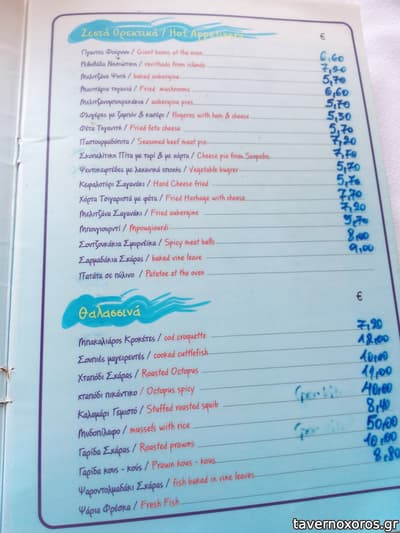 Ζεστά Ορεκτικά / Hot Appetizers
€
Γίγαντες Φούρνου / Giant beans at the oven 6,60
Ρεβυθάδα Νησιώτικη / revithada from islands 7,20
Μελιτζάνα Ψητή / baked aubergine 5,70
Μανιτάρια τηγανιά / Fried mushrooms 6,60
Μελιτζανομπουρεκάκια / aubergine pies 5,70
Φλογέρες με ζαμπόν & κασέρι / Flogeres with ham & cheese 5,30
Φέτα Τηγανητή / Fried feta cheese 5,70
Παστουρμαδόπιτα / Seasoned beef meat pie 7,20
Σκοπελίτικη Πίτα με τυρί & με χόρτα / Cheese pie from Scopelos 7,70
Ψευτοκεφτέδες με λαχανικά εποχής / Vegetable burger 5,70
Κεφαλοτύρι Σαγανάκι / Hard Cheese fried 5,70
Χόρτα Τσιγαριστά με φέτα / Fried Herbage with cheese 7,70
Μελιτζάνα Σαγανάκι / Fried aubergine 7,20
Μπουγιουρντί / Mpougiourdi 5,70
Σουτζουκάκια Σμυρνέικα / Spicy meat balls 8,00
Σαρμαδάκια Σχάρας / baked vine leave 9,00
Πατάτα σε πύλινο / Patatoe at the oven
Θαλασσινά
€
Μπακαλιάρος Κροκέτες / cod croquette 7,20
Σουπιές μαγειρευτές / cooked cuttlefish 12,00
Χταπόδι Σχάρας / Roasted Octopus 10,00
χταπόδι πικάντικο / Octopus spicy 11,00
Καλαμάρι Γεμιστό / Stuffed roasted squib 40,00
Μυδοπίλαφο / mussels with rice 8,40
Γαρίδα Σχάρας / Roasted prawns 50,00
Γαρίδα κους - κούς / Prawn kous - kous 10,00
Ψαροντολμαδάκι Σχάρας / fish baked in vine leaves 8,80
Ψάρια Φρέσκα / Fresh Fish
tavernoxoros.gr